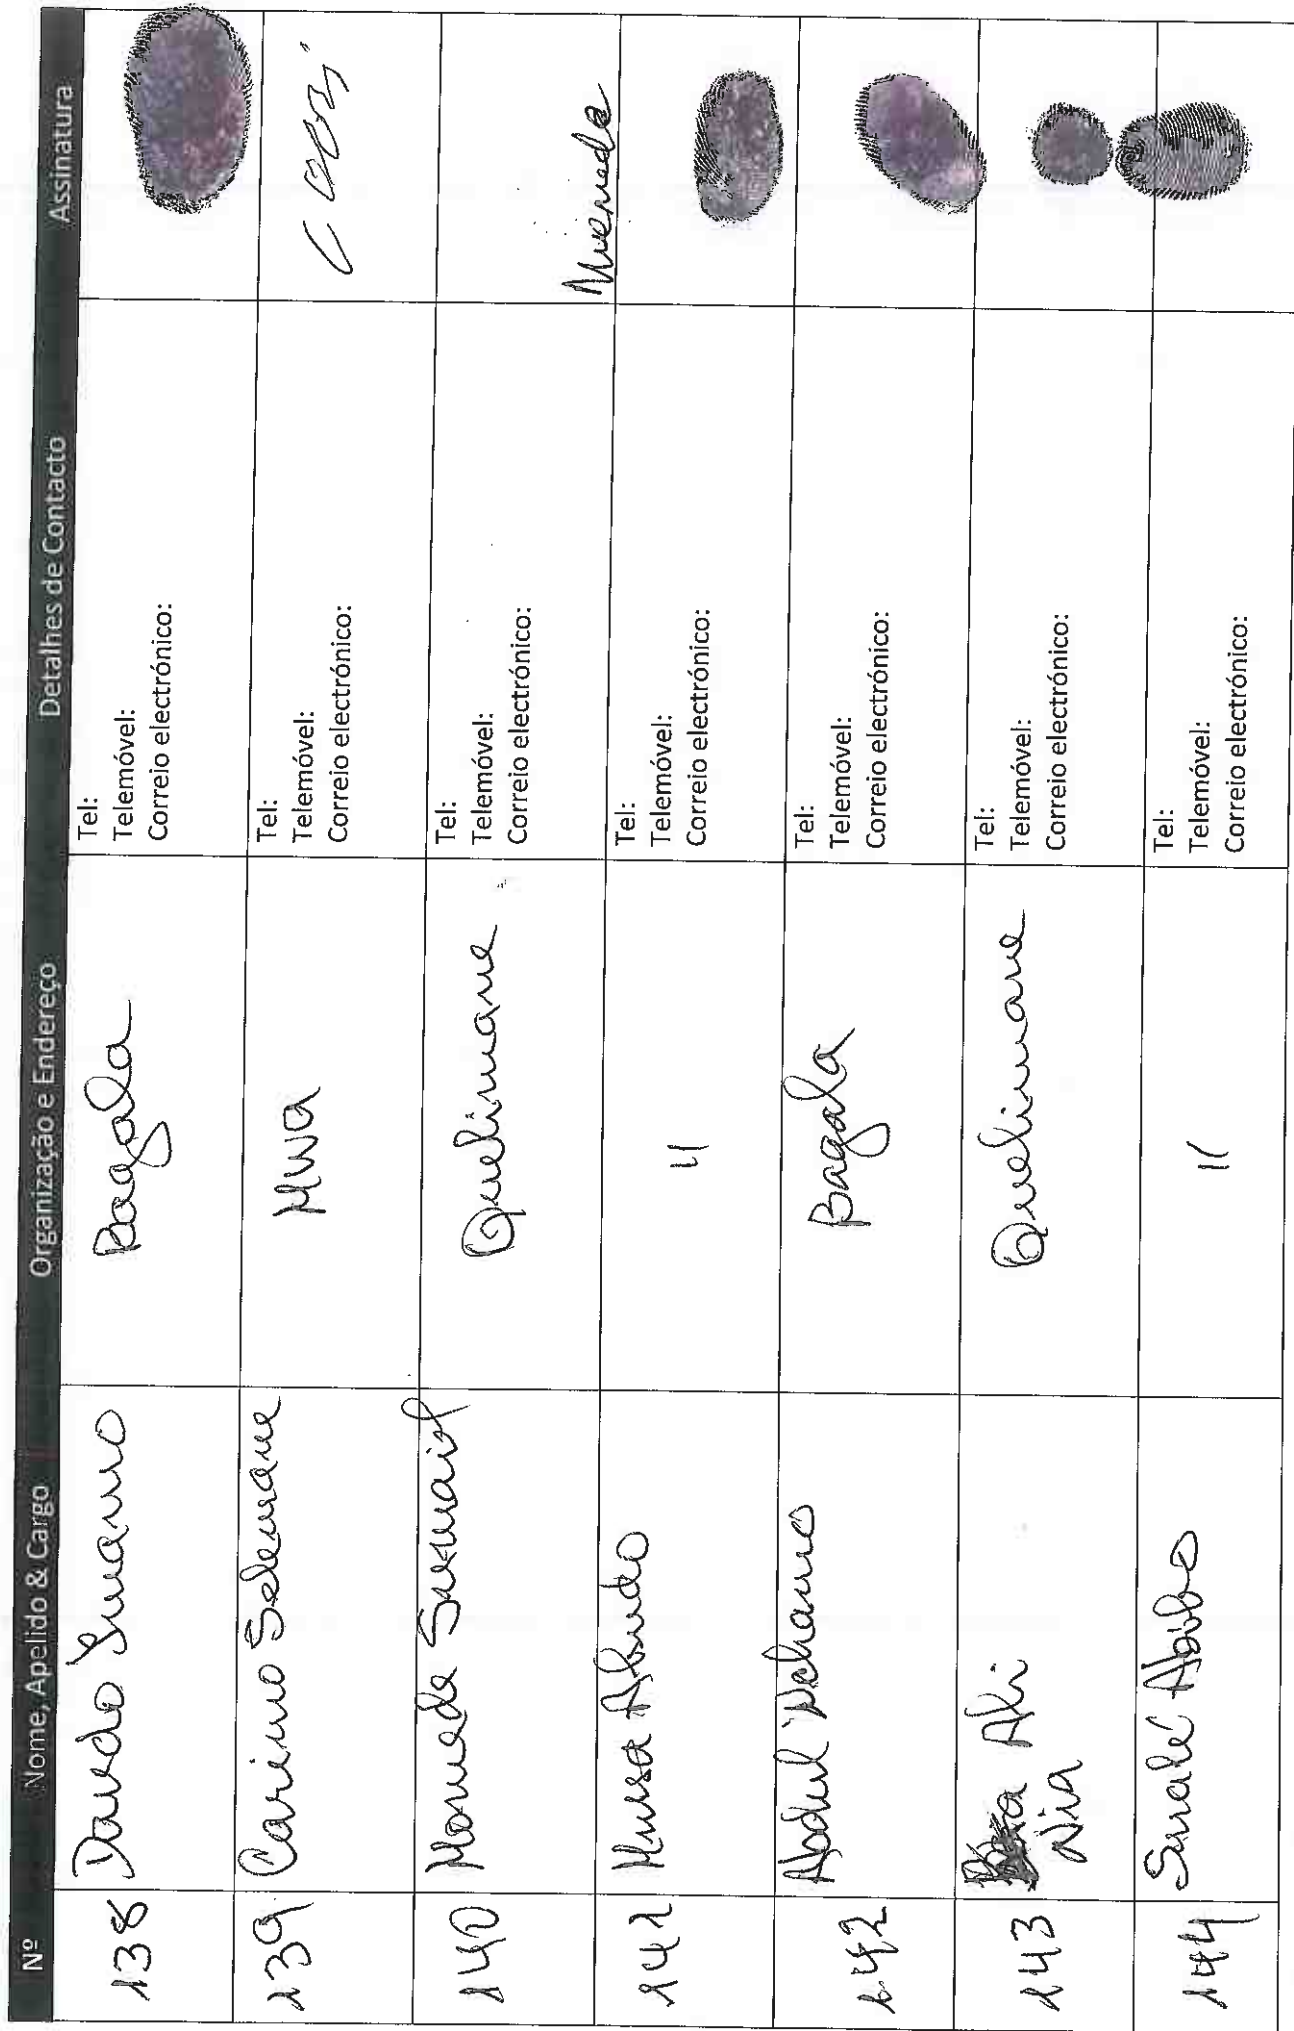 Nº Nome, Apelido & Cargo Organização e Endereço Detalhes de Contacto Assinatura
138 Daudo Sumamo Bagala Tel:
Telemóvel:
Correio electrónico:
139 Carimo Selemane MWA Tel:
Telemóvel:
Correio electrónico:
140 Momade Sumail Quelimane Tel:
Telemóvel:
Correio electrónico:
141 Mussa Abudo 11 Tel:
Telemóvel:
Correio electrónico:
142 Abdul Bagala Tel:
Telemóvel:
Correio electrónico:
143 Ali Quelimane Tel:
Nia Telemóvel:
Correio electrónico:
144 Sualé Abibo 11 Tel:
Telemóvel:
Correio electrónico: